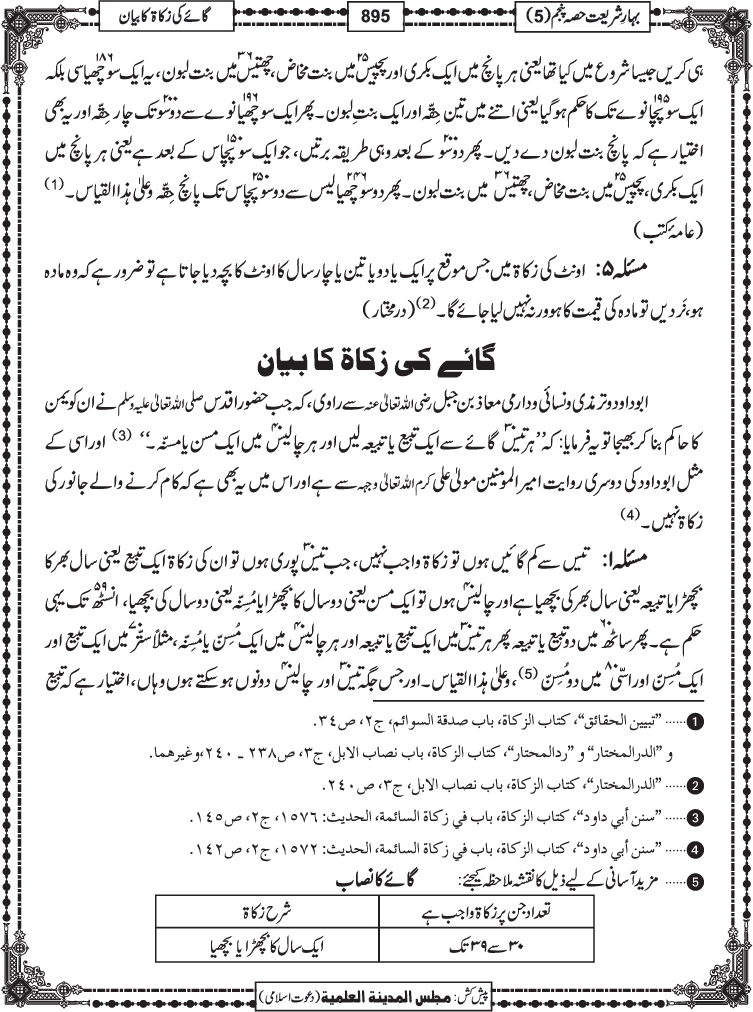 بہارِ شریعت حصہ پنجم (5)
895
گائے کی زکاۃ کا بیان
ہی کریں جیسا شروع میں کیا تھا یعنی ہر پانچ میں ایک بکری اور پچیس۲۵ میں بنت مخاض، چھتیس۳۶ میں بنت لبون، یہ ایک سو چھیاسی۱۸۶ بلکہ
ایک سو پچانوے۱۹۵ تک کا حکم ہوگیا یعنی اتنے میں تین حِقّہ اور ایک بنت لبون۔ پھر ایک سو چھیانوے۱۹۶ سے دو سو۲۰۰ تک چار حِقّہ اور یہ بھی
اختیار ہے کہ پانچ بنت لبون دے دیں۔ پھر دو سو۲۰۰ کے بعد وہی طریقہ برتیں، جو ایک سو پچاس۱۵۰ کے بعد ہے یعنی ہر پانچ میں
ایک بکری، پچیس۲۵ میں بنت مخاض، چھتیس۳۶ میں بنت لبون۔ پھر دو سو چھیالیس۲۴۶ سے دو سو پچاس۲۵۰ تک پانچ حِقّہ وعلیٰ ہذا القیاس۔ (1)
(عامۂ کتب)
مسئلہ ۵: اونٹ کی زکاۃ میں جس موقع پر ایک یا دو یا تین یا چار سال کا اونٹ کا بچہ دیا جاتا ہے تو ضرور ہے کہ وہ مادہ
ہو، نَر دیں تو مادہ کی قیمت کا ہو ورنہ نہیں لیا جائے گا۔ (2) (درمختار)
گائے کی زکاۃ کا بیان
ابو داود و ترمذی و نسائی و دارمی معاذ بن جبل رضی اللہ تعالیٰ عنہ سے راوی، کہ جب حضور اقدس صلی اللہ تعالیٰ علیہ وسلم نے ان کو یمن
کا حاکم بنا کر بھیجا تو یہ فرمایا: کہ ’’ہر تیس۳۰ گائے سے ایک تبیع یا تبیعہ لیں اور ہر چالیس۴۰ میں ایک مسن یا مسنّہ۔‘‘ (3) اور اسی کے
مثل ابو داود کی دوسری روایت امیر المومنین مولیٰ علی کرم اللہ تعالیٰ وجہہ سے ہے اور اس میں یہ بھی ہے کہ کام کرنے والے جانور کی
زکاۃ نہیں۔ (4)
مسئلہ ۱: تیس سے کم گائیں ہوں تو زکاۃ واجب نہیں، جب تیس۳۰ پوری ہوں تو ان کی زکاۃ ایک تبیع یعنی سال بھر کا
بچھڑا یا تبیعہ یعنی سال بھر کی بچھیا ہے اور چالیس۴۰ ہوں تو ایک مسن یعنی دو سال کا بچھڑا یا مُسِنّہ یعنی دو سال کی بچھیا، انسٹھ۵۹ تک یہی
حکم ہے۔ پھر ساٹھ۶۰ میں دو تبیع یا تبیعہ پھر ہر تیس۳۰ میں ایک تبیع یا تبیعہ اور ہر چالیس۴۰ میں ایک مُسِنّ یا مُسِنّہ، مثلاً ستّر۷۰ میں ایک تبیع اور
ایک مُسِنّ اور اسّی۸۰ میں دو مُسِنّ (5)، وعلیٰ ہذا القیاس۔ اور جس جگہ تیس۳۰ اور چالیس۴۰ دونوں ہوسکتے ہوں وہاں، اختیار ہے کہ تبیع
1 ...... "تبیین الحقائق"، کتاب الزکاۃ، باب صدقة السوائم، ج۲، ص٣٤.
و "الدرالمختار" و "ردالمحتار"، کتاب الزکاۃ، باب نصاب الابل، ج۳، ص۲۳۸ ـ ٢٤٠، وغیرهما.
2 ...... "الدرالمختار"، کتاب الزکاۃ، باب نصاب الابل، ج۳، ص٢٤٠.
3 ...... "سنن أبي داود"، کتاب الزکاۃ، باب في زکاۃ السائمة، الحدیث: ١٥٧٦، ج۲، ص١٤٥.
4 ...... "سنن أبي داود"، کتاب الزکاۃ، باب في زکاۃ السائمة، الحدیث: ١٥٧٢، ج۲، ص١٤٢.
5 ...... مزید آسانی کے لیے ذیل کا نقشہ ملاحظہ کیجئے: گائے کا نصاب
تعداد جن پر زکاۃ واجب ہے شرح زکاۃ
۳۰ سے ۳۹ تک ایک سال کا بچھڑا یا بچھیا
پیش کش: مجلس المدینة العلمیة (دعوت اسلامی)